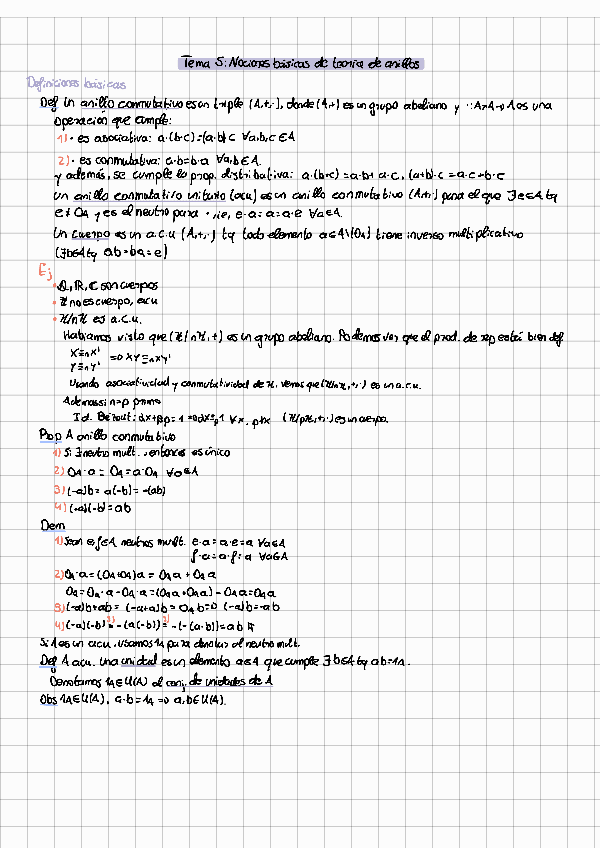 Tema 5: Nociones básicas de teoría de anillos
Definiciones básicas
Def Un anillo conmutativo es un triple (A,+,·), donde (A,+) es un grupo abeliano y ·:A×A→A es una
operación que cumple:
1) · es asociativa: a·(b·c)=(a·b)·c ∀a,b,c∈A
2) · es conmutativa: a·b=b·a ∀a,b∈A.
y además, se cumple la prop. distributiva: a·(b+c)=a·b+a·c, (a+b)·c=a·c+b·c
Un anillo conmutativo unitario (acu) es un anillo conmutativo (A,+,·) para el que ∃e∈A tq
e≠0A y es el neutro para ·, i.e, e·a=a=a·e ∀a∈A.
Un cuerpo es un a.c.u (A,+,·) tq todo elemento a∈A\{0A} tiene inverso multiplicativo
(∃b∈A tq ab=ba=e)
Ej
• Q, R, C son cuerpos
• Z no es cuerpo, acu
• Z/nZ es a.c.u.
Habíamos visto que (Z/nZ,+) es un grupo abeliano. Podemos ver que el prod. de rep está bien def
X≡nX'
Y≡nY' ⇒ XY≡nX'Y'
Usando asociatividad y conmutatividad de Z, vemos que (Z/nZ,+,·) es un a.c.u.
Además si n=p primo
Id. Bézout: αx+βp=1 ⇒ αx≡p1 ∀x, p∤x (Z/pZ,+,·) es un cuerpo.
Prop A anillo conmutativo
1) Si ∃ neutro mult., entonces es único
2) 0A·a = 0A = a·0A ∀a∈A
3) (-a)b = a(-b) = -(ab)
4) (-a)(-b) = ab
Dem
1) Sean e,f∈A neutros mult. e·a=a·e=a ∀a∈A
f·a=a·f=a ∀a∈A
2) 0A·a=(0A+0A)a = 0A a + 0A a
0A=0A·a-0A·a=(0A a+0A a)-0A a=0A a
3) (-a)b+ab = (-a+a)b = 0A b=0 (-a)b=-ab
4) (-a)(-b) =3) -(a(-b)) =3) -(-(a·b))=ab
Si A es un acu, usamos 1A para denotar el neutro mult.
Def A acu. Una unidad es un elemento a∈A que cumple ∃b∈A tq ab=1A.
Denotamos 1A∈U(A) al conj. de unidades de A
Obs 1A∈U(A), a·b=1A ⇒ a,b∈U(A).